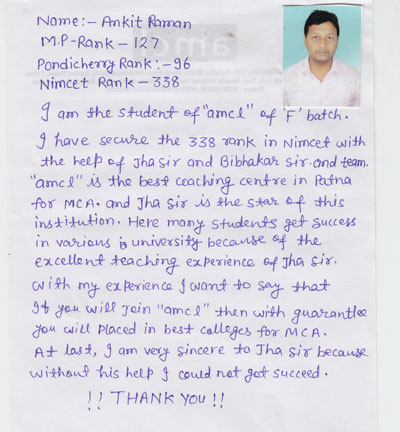 Name:- Ankit Raman
M.P-Rank - 127
Pondicherry Rank:-96
Nimcet Rank - 338
I am the student of "amcl" of 'F' batch.
I have secure the 338 rank in Nimcet with
the help of Jha Sir and Bibhakar Sir. and team.
"amcl" is the best coaching centre in Patna
for MCA. and Jha Sir is the star of this
institution. Here many students get success
in various university because of the
excellent teaching experience of Jha Sir.
With my experience I want to say that
If you will join "amcl" then with guarantee
you will placed in best colleges for MCA.
At last, I am very sincere to Jha Sir because
without his help I could not get succeed.
!! THANK YOU !!